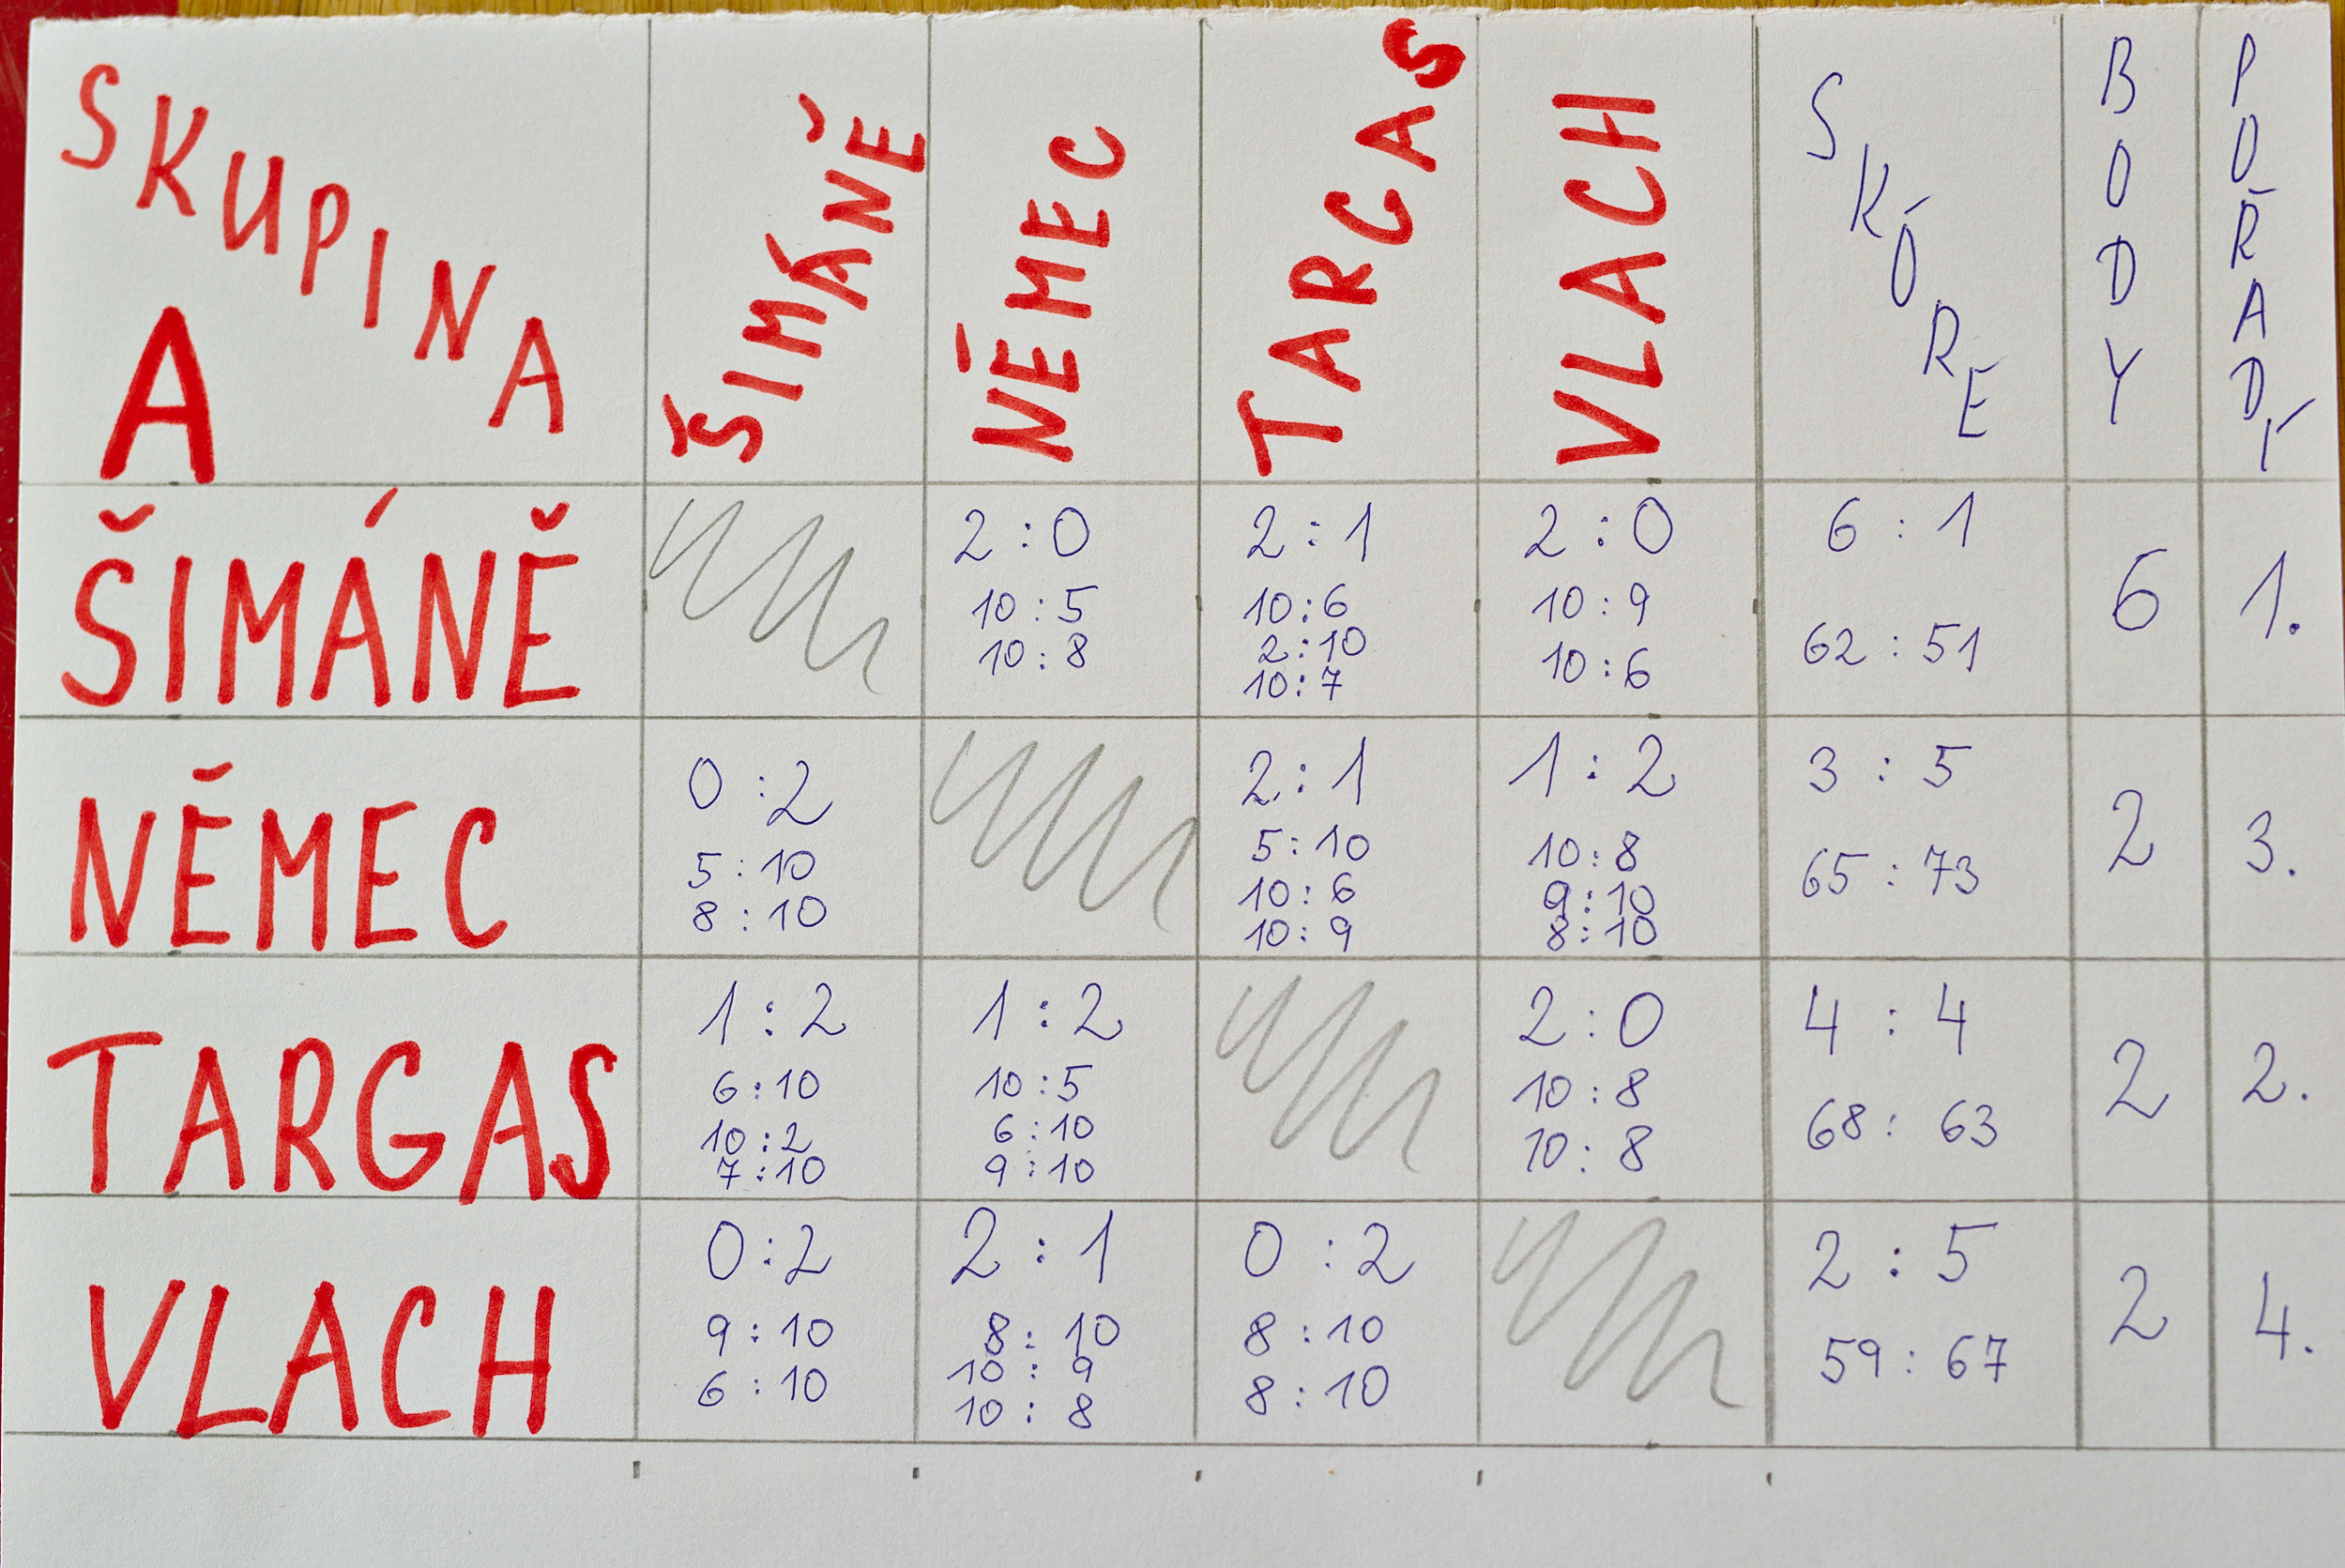 SKUPINA A
ŠIMÁNĚ
NĚMEC
TARGAS
VLACH
SKÓRE
BODY
POŘADÍ
ŠIMÁNĚ
2:0
10:5
10:8
2:1
10:6
2:10
10:7
2:0
10:9
10:6
6:1
62:51
6
1.
NĚMEC
0:2
5:10
8:10
2:1
5:10
10:6
10:9
1:2
10:8
9:10
8:10
3:5
65:73
2
3.
TARGAS
1:2
6:10
10:2
7:10
1:2
10:5
6:10
9:10
2:0
10:8
10:8
4:4
68:63
2
2.
VLACH
0:2
9:10
6:10
2:1
8:10
10:9
10:8
0:2
8:10
8:10
2:5
59:67
2
4.